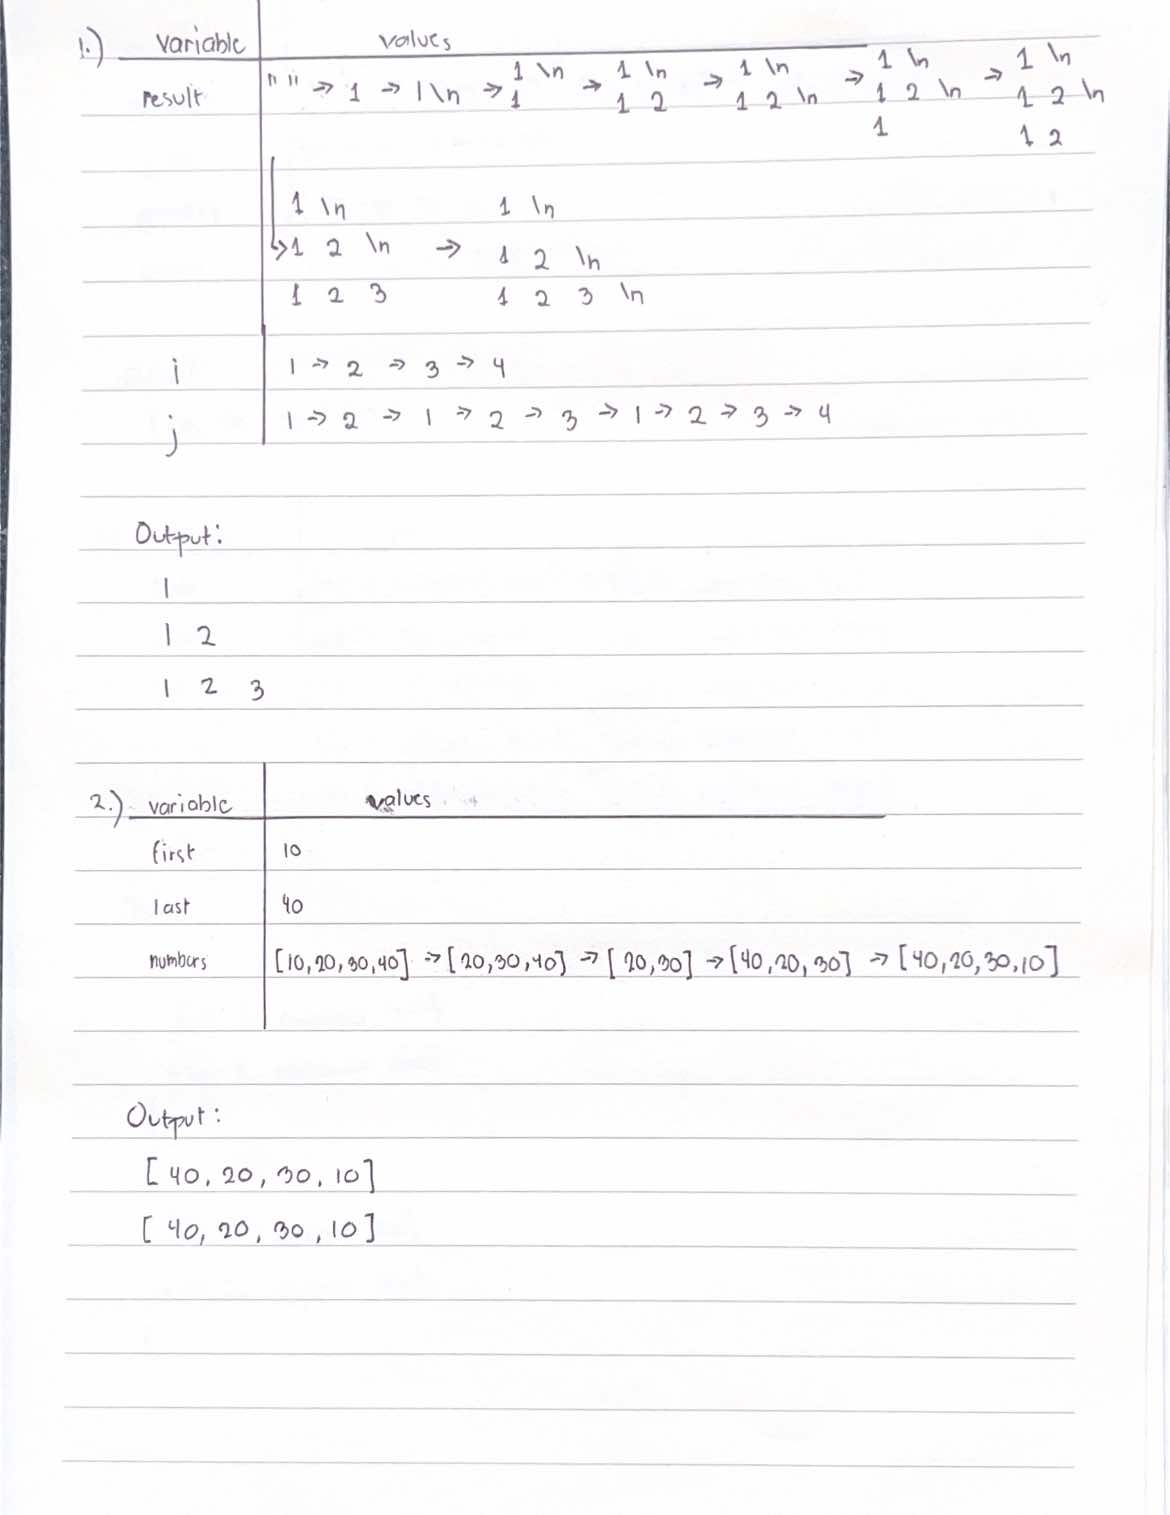 1.) variable values
result " " → 1 → 1\n → 1 \n → 1 \n → 1 \n → 1 \n → 1 \n
1 1 2 1 2 \n 1 2 \n 1 2 \n
1 1 2
1 \n 1 \n
→ 1 2 \n → 1 2 \n
1 2 3 1 2 3 \n
i 1 → 2 → 3 → 4
j 1 → 2 → 1 → 2 → 3 → 1 → 2 → 3 → 4
Output:
1
1 2
1 2 3
2.) variable values
first 10
last 40
numbers [10,20,30,40] → [20,30,40] → [20,30] → [40,20,30] → [40,20,30,10]
Output:
[40, 20, 30, 10]
[40, 20, 30, 10]